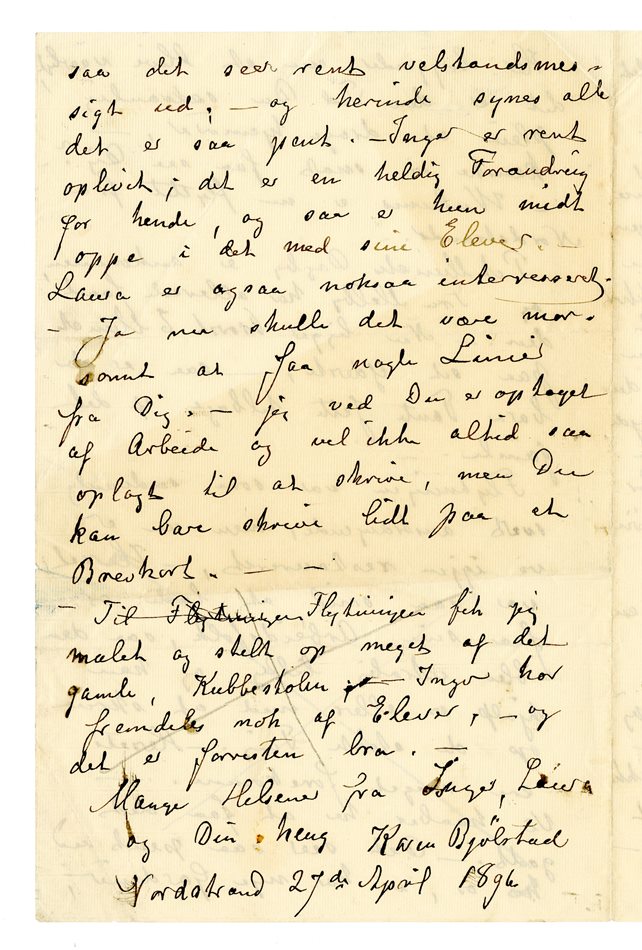 saa det seer rent velstandsmes-
sigt ud; — og herinde synes alle
det er saa pent. — Inger er rent
oplivet; det er en heldig Forandring
for hende, og saa er hun midt
oppe i det med sine Elever. —
Laura er ogsaa noksaa interresseret.
— Ja nu skulde det være mor-
somt at faa nogle Linier
fra Dig. — jeg ved Du er optaget
af Arbeide og vel ikke altid saa
oplagt til at skrive, men Du
kan bare skrive lidt paa et
Brevkort. — —
— Til Flytningen Flytningen fik jeg
malet og stelt op meget af det
gamle, Kubbestolen — Inger har
fremdeles nok af Elever, — og
det er forresten bra. —
Mange Hilsener fra Inger, Laura
og Din heng Karen Bjölstad
Nordstrand 27de April 1896